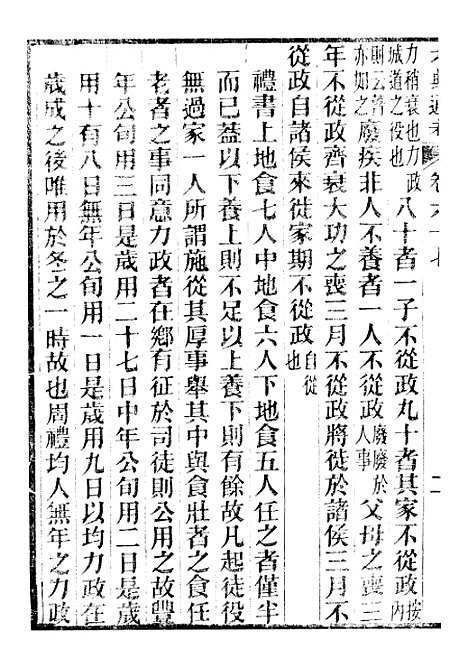 六典通考卷六十七 二
力稍衰也力政城道之役也八十者一子不從政九十者其家不從政按內
則云瞽亦如之廢疾非人不養者一人不從政廢廢於人事父母之喪三
年不從政齊衰大功之喪三月不從政將徙於諸侯三月不
從政自諸侯來徙家期不從政自從也
禮書上地食七人中地食六人下地食五人任之者僅半
而已蓋以下養上則不足以上養下則有餘故凡起徒役
無過家一人所謂施從其厚事舉其中與食壯者之食任
老者之事同意力政者在鄉有征於司徒則公用之故豐
年公旬用三日是歲用二十七日中年公旬用二日是歲
用十有八日無年公旬用一日是歲用九日以均力政在
歲成之後唯用於冬之一時故也周禮均人無年之力政